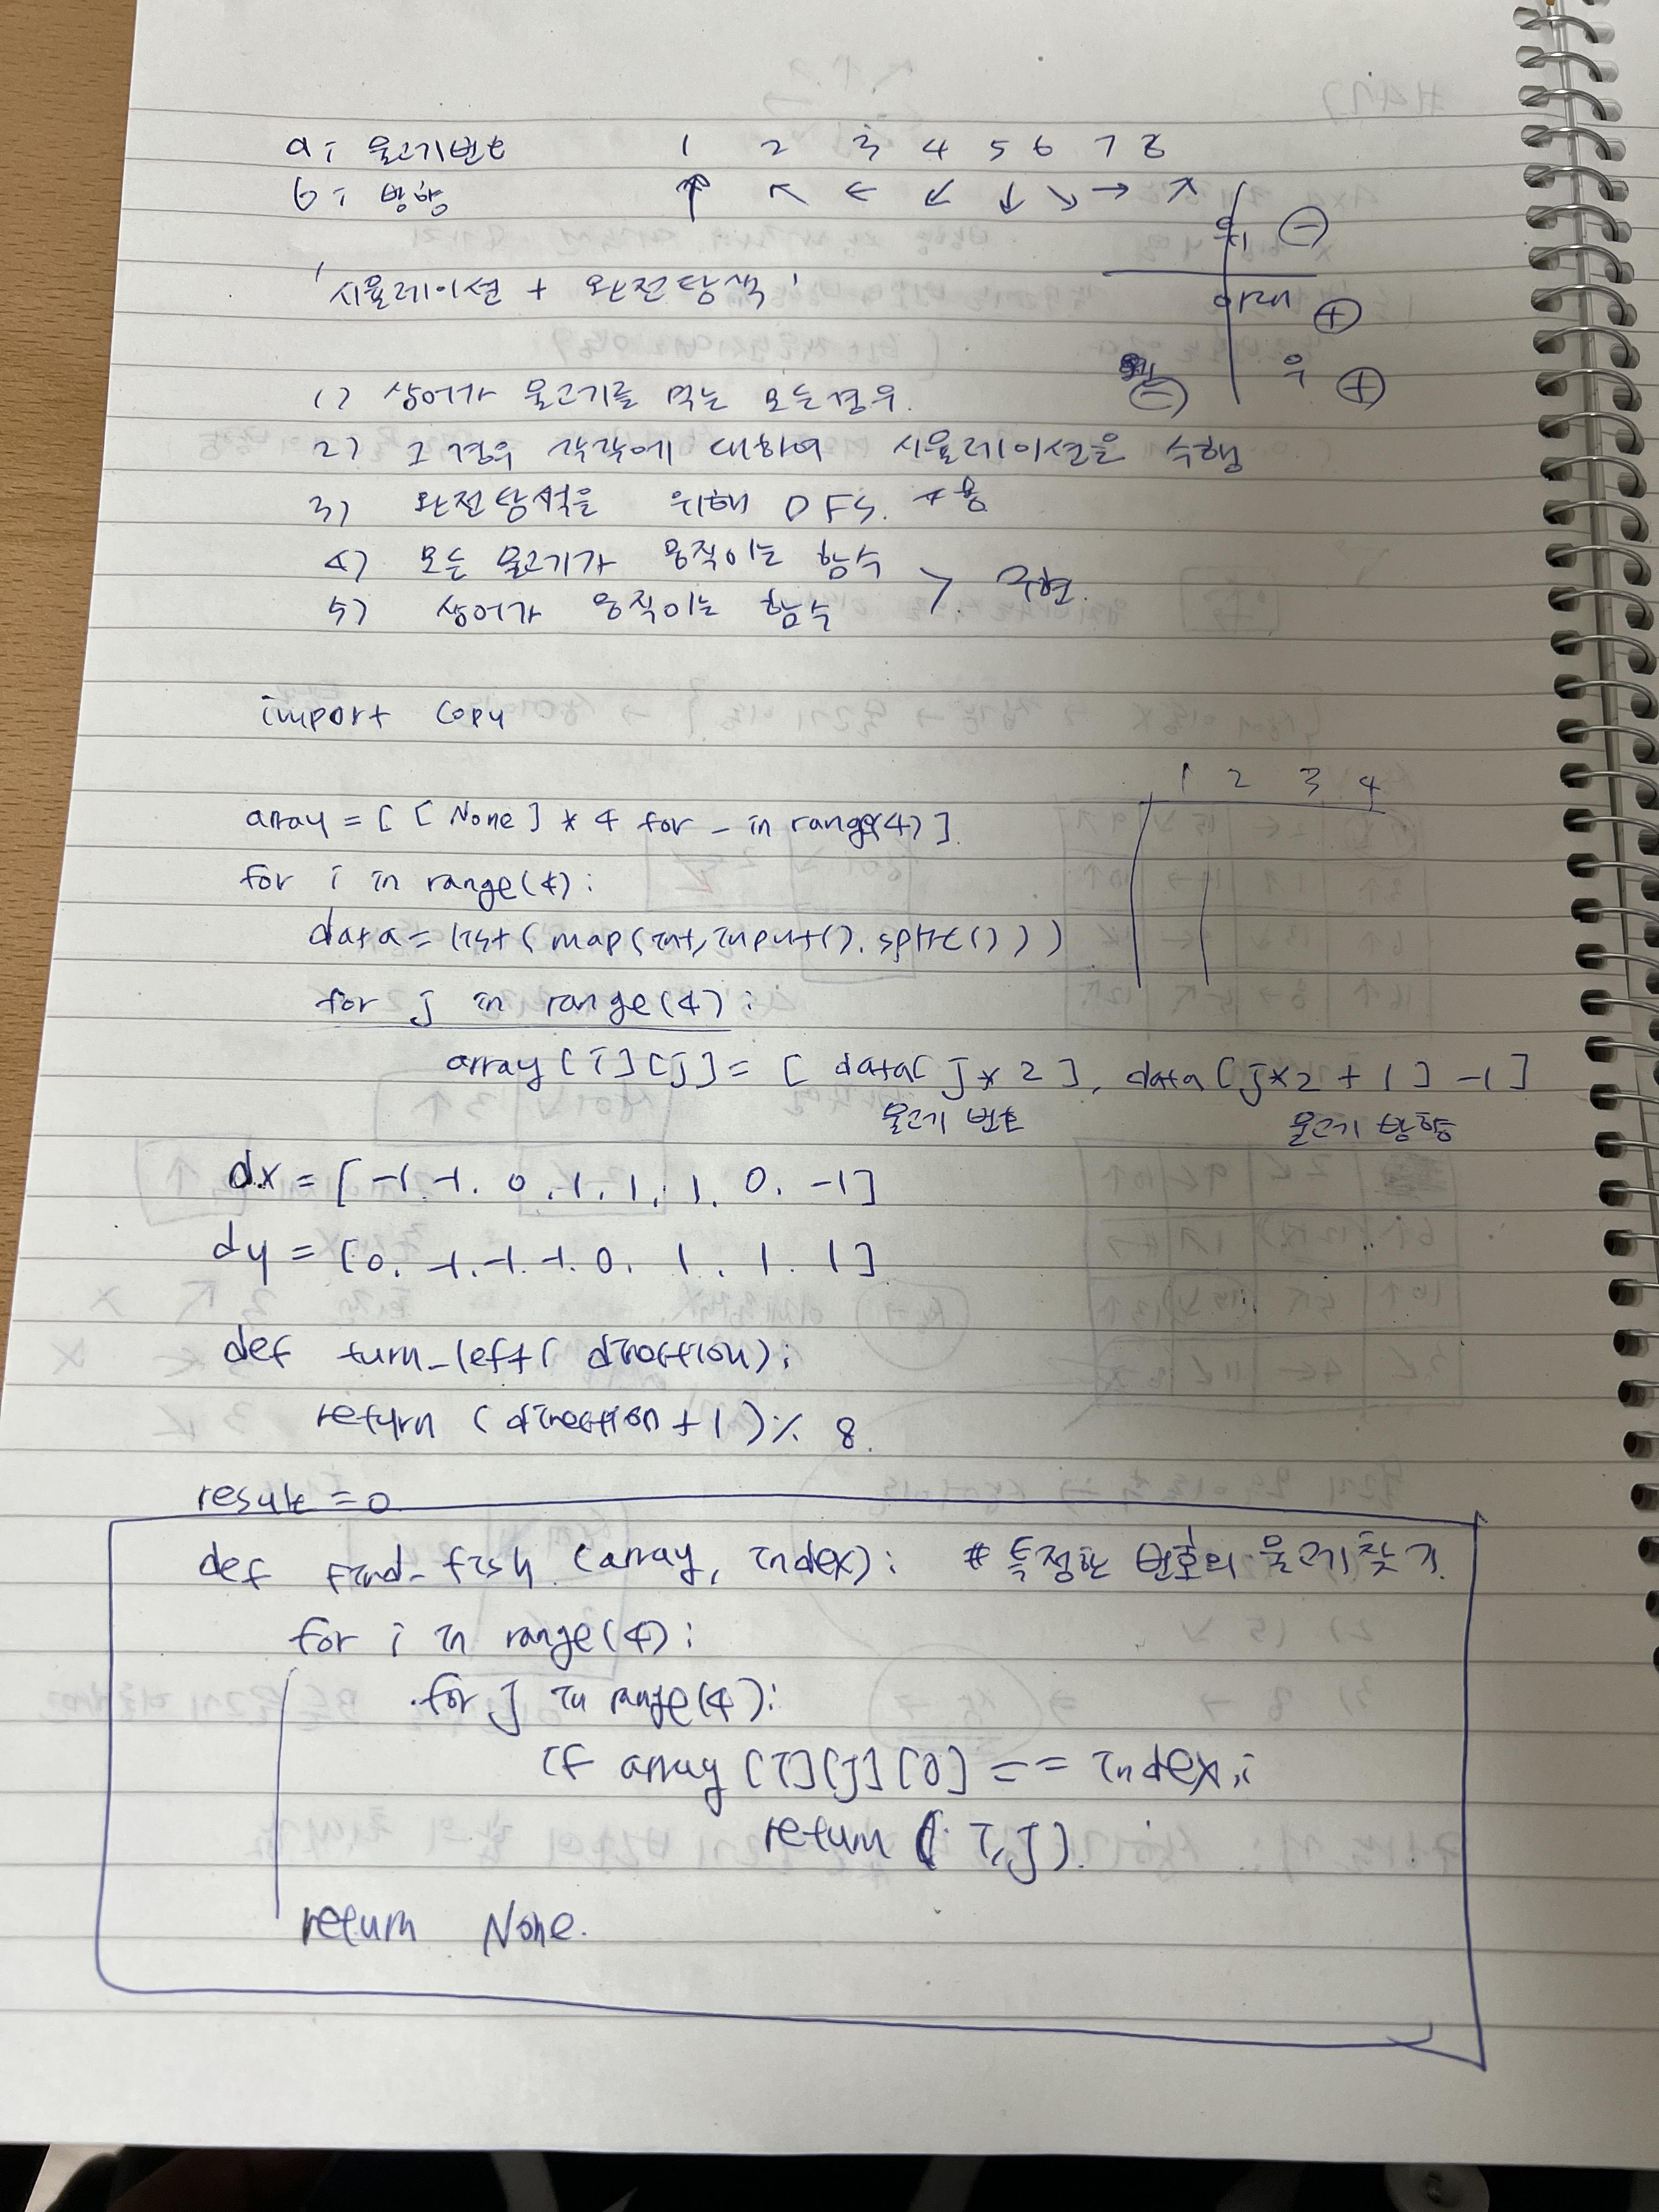 a: 물고기번호 1 2 3 4 5 6 7 8
b: 방향 ↑ ↖ ← ↙ ↓ ↘ → ↗
위 ⊖
'시뮬레이션 + 완전탐색'
아래 ⊕
⊖ 우 ⊕
1) 상어가 물고기를 먹는 모든경우.
2) 그 경우 각각에 대하여 시뮬레이션을 수행
3) 완전탐색을 위해 DFS. 사용
4) 모든 물고기가 움직이는 함수
5) 상어가 움직이는 함수 > 구현.
import copy
1 2 3 4
array = [ [ None ] * 4 for _ in range(4) ]
for i in range(4):
data = list( map(int, input(). split( ) ) )
for j in range(4):
array [i][j] = [ data[ j * 2 ], data [j*2 + 1 ] -1 ]
물고기 번호 물고기 방향
dx = [ -1, -1, 0, 1, 1, 1, 0, -1 ]
dy = [0, -1, -1, -1, 0, 1, 1, 1 ]
def turn_left( direction):
return ( direction + 1 ) % 8
result = 0
def find_fish (array, index): # 특정한 번호의 물고기 찾기.
for i in range(4):
for j in range(4):
if array [i][j][0] == index:
return ( i, j ).
return None.